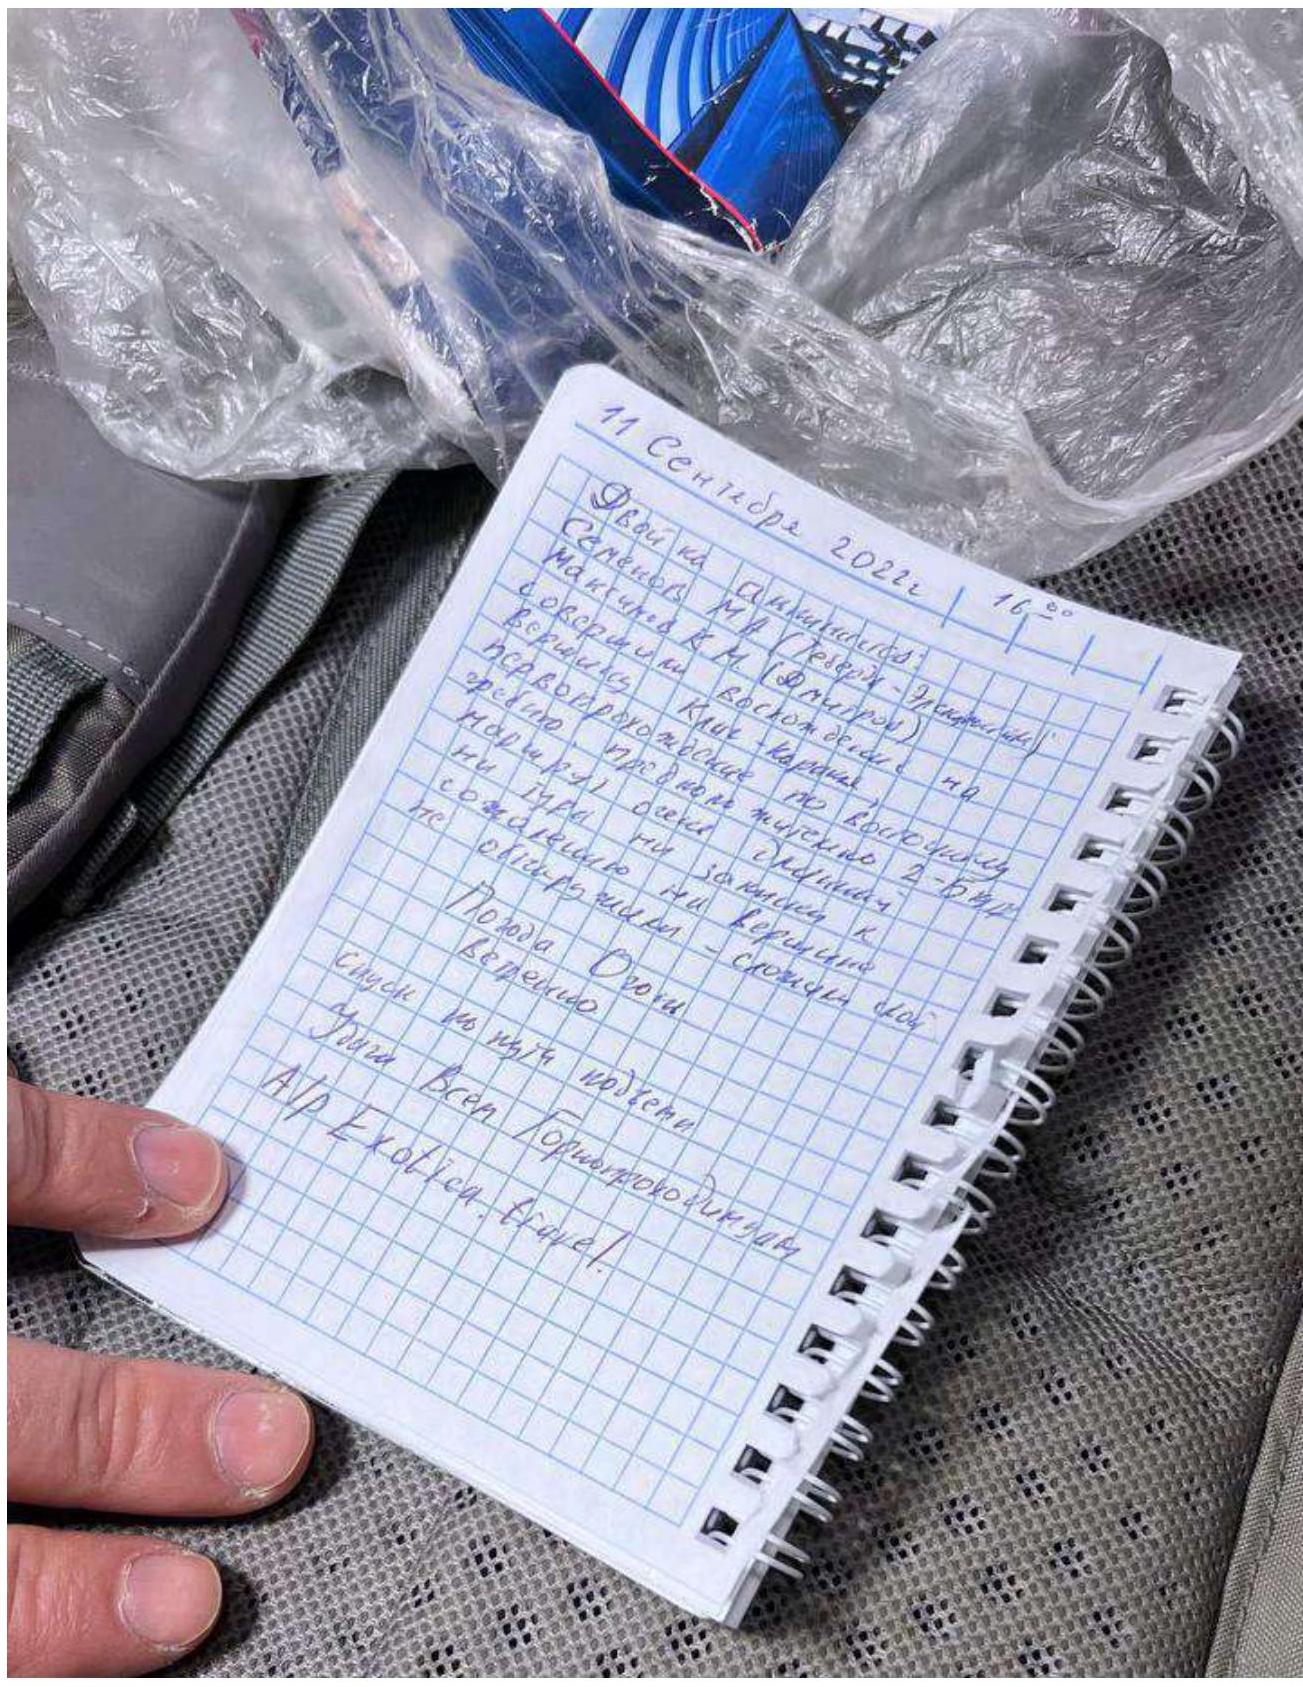 11 Сентября 2022г 16⁰⁰
Двойка альпинистов:
Семенов М.А (Теберда-
Мактинов К.М. (Дмитров)
совершили восхождение на
вершину Клич-Каракая
первопрохождение по восточному
гребню, предположительно 2-Бк/т
маршрут очень длинный
ни тура ни записки к
сожалению на вершине
не обнаружили - сложили свой
Погода Огонь
ветренно
спуск по пути подъема
Удачи Всем Горнопроходимцам
Alp Exotica.travel!